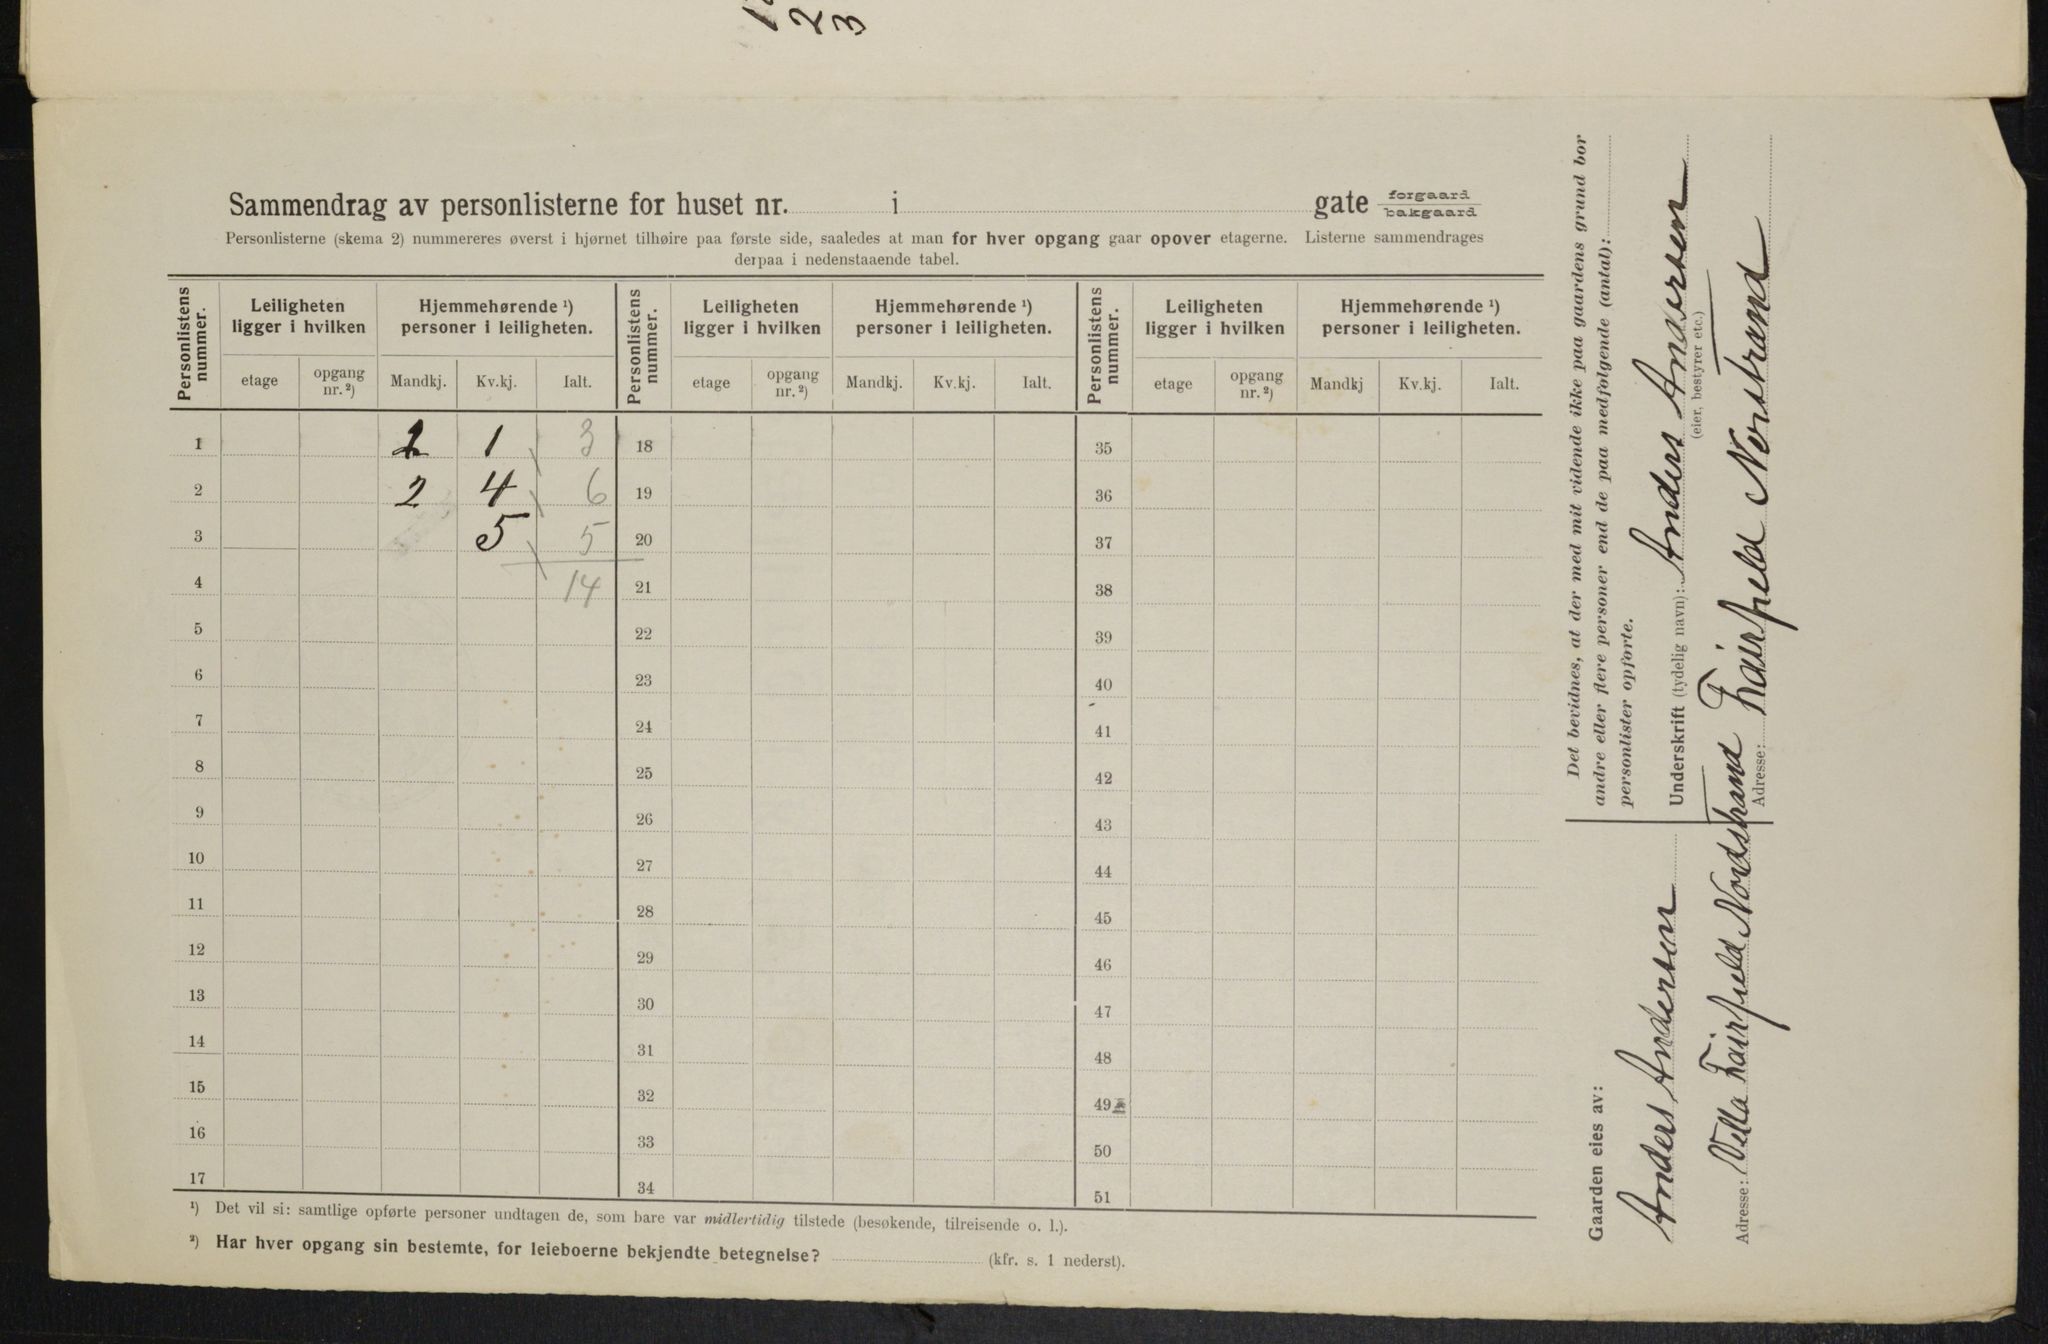 2
3
Sammendrag av personlisterne for huset nr. i gate forgaard
bakgaard
Personlisterne (skema 2) nummereres øverst i hjørnet tilhøire paa første side, saaledes at man for hver opgang gaar opover etagerne. Listerne sammendrages
derpaa i nedenstaaende tabel.
Personlistens nummer. Leiligheten ligger i hvilken Hjemmehørende ¹) personer i leiligheten. Personlistens nummer. Leiligheten ligger i hvilken Hjemmehørende ¹) personer i leiligheten. Personlistens nummer. Leiligheten ligger i hvilken Hjemmehørende ¹) personer i leiligheten.
etage opgang nr. ²) Mandkj. Kv.kj. Ialt. etage opgang nr. ²) Mandkj. Kv.kj. Ialt. etage opgang nr. ²) Mandkj Kv.kj. Ialt.
1 2 1 3 18 35
2 2 4 6 19 36
3 5 5 20 37
4 14 21 38
5 22 39
6 23 40
7 24 41
8 25 42
9 26 43
10 27 44
11 28 45
12 29 46
13 30 47
14 31 48
15 32 49
16 33 50
17 34 51
¹) Det vil si: samtlige opførte personer undtagen de, som bare var midlertidig tilstede (besøkende, tilreisende o. l.).
²) Har hver opgang sin bestemte, for leieboerne bekjendte betegnelse? (kfr. s. 1 nederst).
Det bevidnes, at der med mit vidende ikke paa gaardens grund bor
andre eller flere personer end de paa medfølgende (antal):
personlister opførte.
Underskrift (tydelig navn): Anders Andersen
(eier, bestyrer etc.)
Adresse: Fairfield Norstrand
Gaarden eies av:
Anders Andersen
Adresse: Villa Fairfield Nordstrand